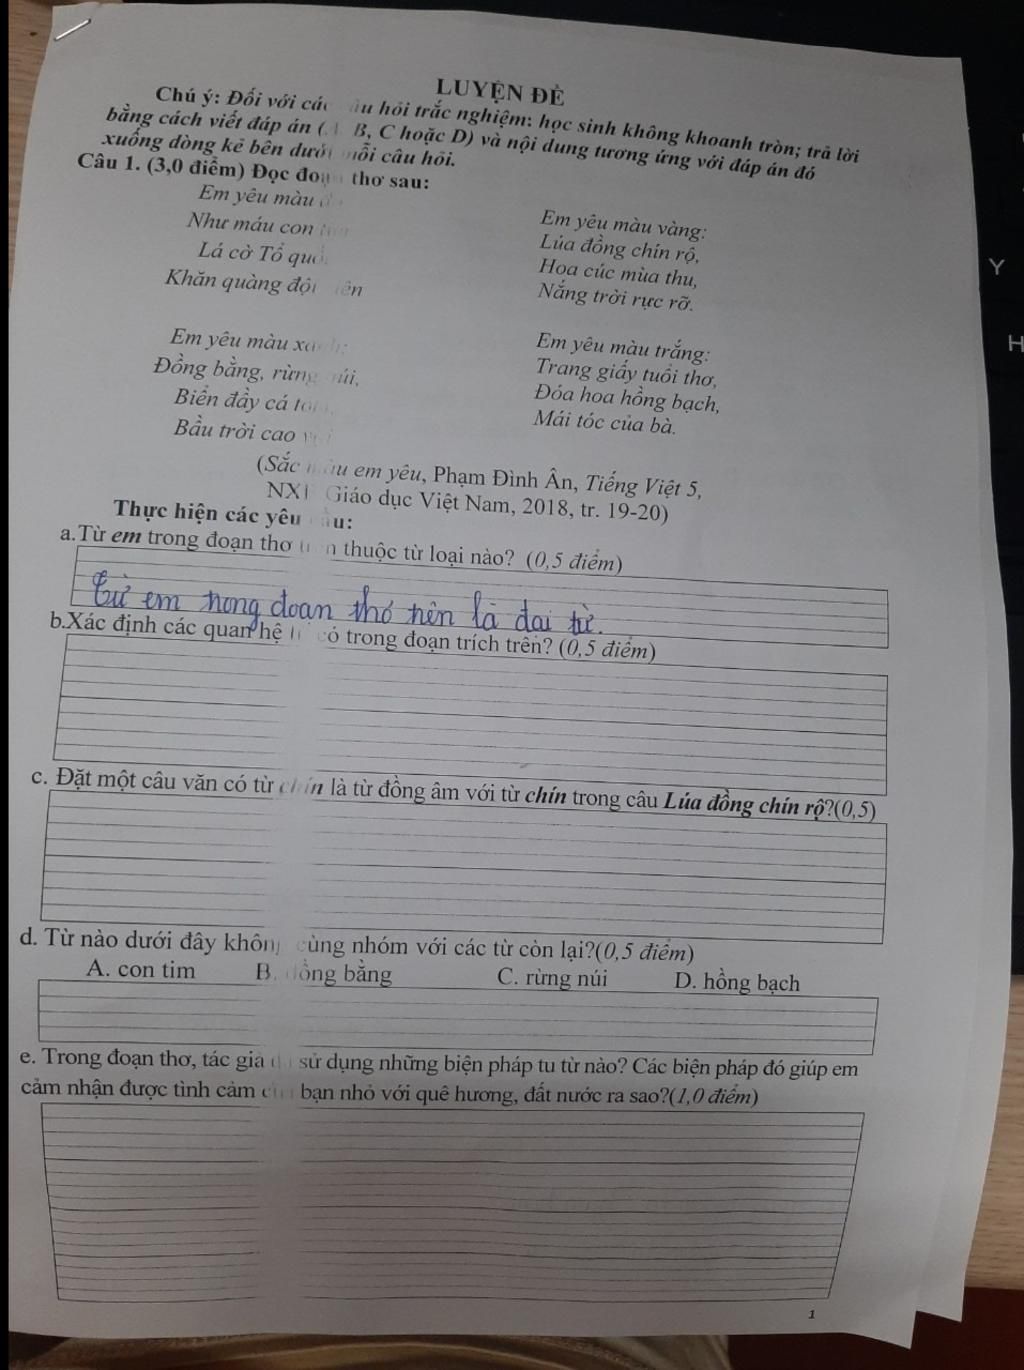 LUYỆN ĐỀ
Chú ý: Đối với các câu hỏi trắc nghiệm: học sinh không khoanh tròn; trả lời
bằng cách viết đáp án (A, B, C hoặc D) và nội dung tương ứng với đáp án đó
xuống dòng kẻ bên dưới mỗi câu hỏi.
Câu 1. (3,0 điểm) Đọc đoạn thơ sau:
Em yêu màu
Như máu con
Lá cờ Tổ quốc
Khăn quàng đội viên
Em yêu màu xanh:
Đồng bằng, rừng núi,
Biển đầy cá tôm,
Bầu trời cao
Em yêu màu vàng:
Lúa đồng chín rộ,
Hoa cúc mùa thu,
Nắng trời rực rỡ.
Em yêu màu trắng:
Trang giấy tuổi thơ,
Đóa hoa hồng bạch,
Mái tóc của bà.
(Sắc màu em yêu, Phạm Đình Ân, Tiếng Việt 5,
NXB Giáo dục Việt Nam, 2018, tr. 19-20)
Thực hiện các yêu cầu:
a.Từ em trong đoạn thơ trên thuộc từ loại nào? (0,5 điểm)
từ em trong đoạn thơ trên là đại từ.
b.Xác định các quan hệ từ có trong đoạn trích trên? (0,5 điểm)
c. Đặt một câu văn có từ chín là từ đồng âm với từ chín trong câu Lúa đồng chín rộ?(0,5)
d. Từ nào dưới đây không cùng nhóm với các từ còn lại?(0,5 điểm)
A. con tim B. đồng bằng C. rừng núi D. hồng bạch
e. Trong đoạn thơ, tác giả đã sử dụng những biện pháp tu từ nào? Các biện pháp đó giúp em
cảm nhận được tình cảm của bạn nhỏ với quê hương, đất nước ra sao?(1,0 điểm)
1
Y
H